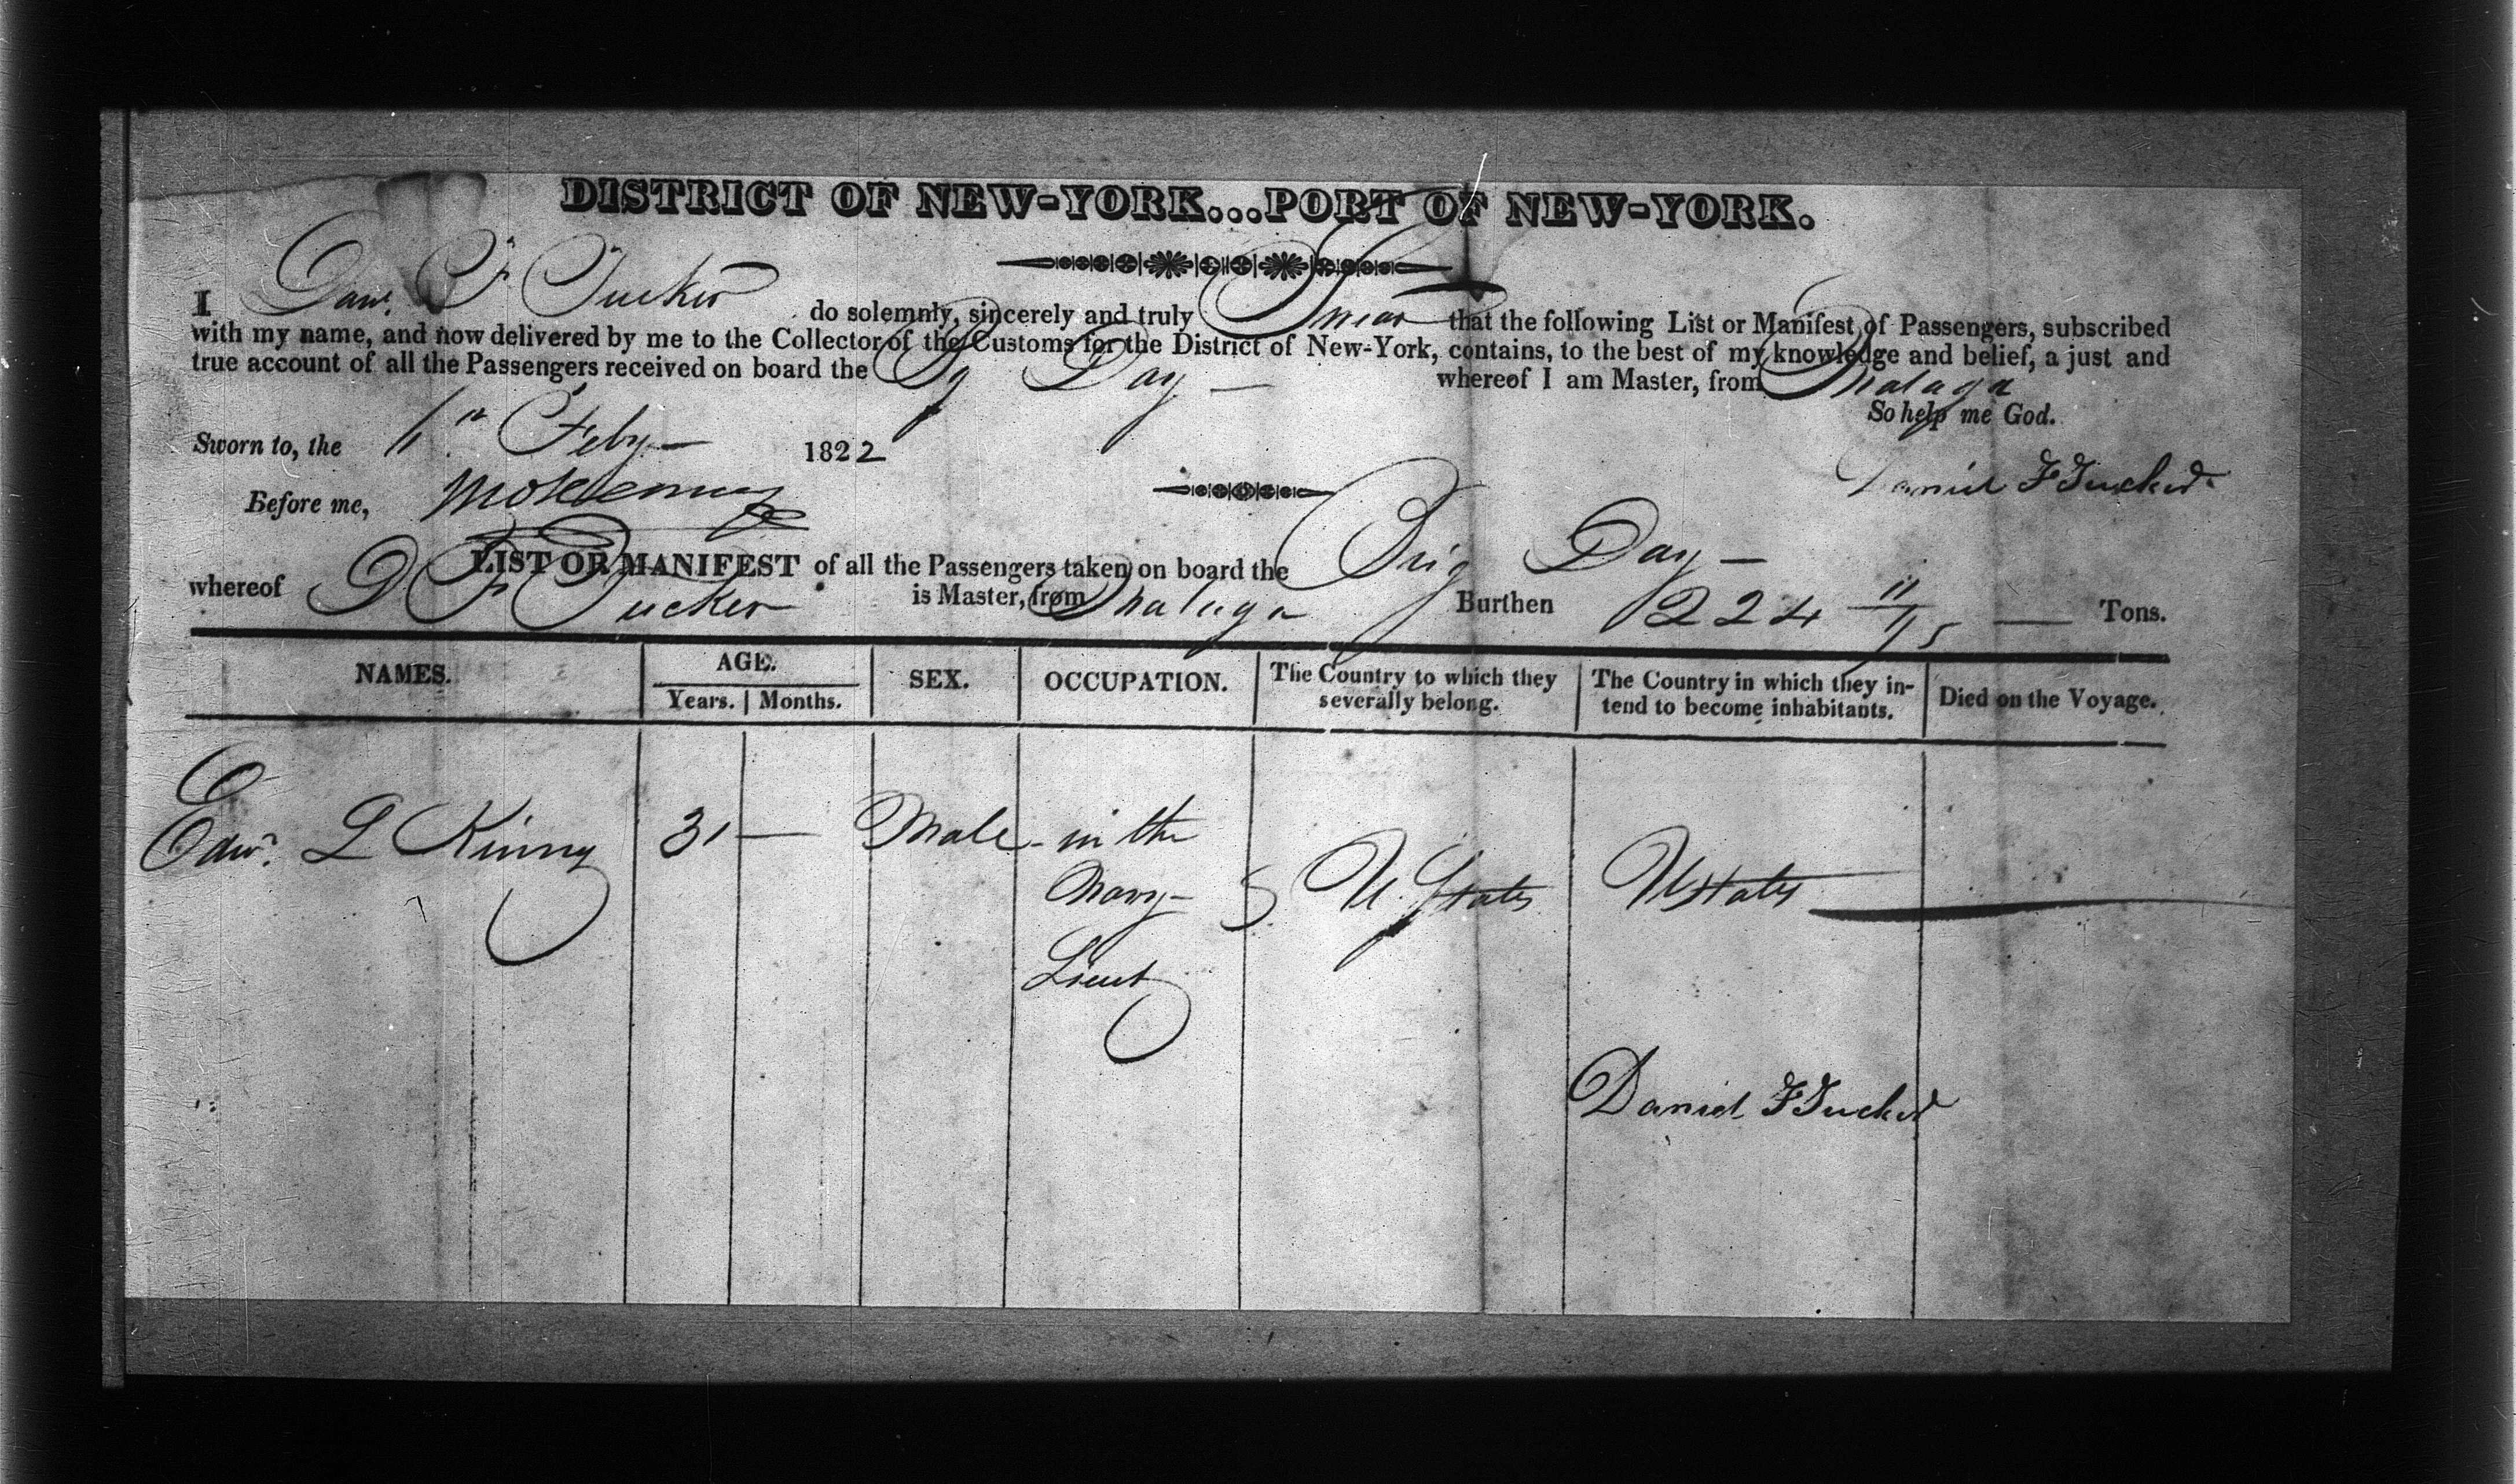 DISTRICT OF NEW-YORK...PORT OF NEW-YORK.
I Danl. F Tucker do solemnly, sincerely and truly Swear that the following List or Manifest of Passengers, subscribed
with my name, and now delivered by me to the Collector of the Customs for the District of New-York, contains, to the best of my knowledge and belief, a just and
true account of all the Passengers received on board the Bg Day — whereof I am Master, from Malaga
So help me God.
Sworn to, the Feby — 1822
Before me,
Daniel F Tucker
LIST OR MANIFEST of all the Passengers taken on board the Brig Day —
whereof D F Tucker is Master, from Malaga Burthen 224 11/95 — Tons.
NAMES. AGE. SEX. OCCUPATION. The Country to which they severally belong. The Country in which they in-tend to become inhabitants. Died on the Voyage.
Years. Months.
Edwd. L Kinny 31 — Male - in the
Navy — U. States UStates —
Lieut
Daniel F Tucker